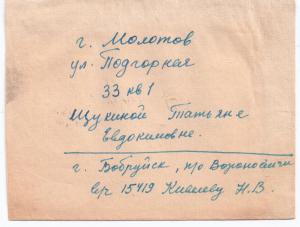 г. Молотов
ул. Подгорная
33 кв 1
Щукиной Татьяне
Евдокимовне.
г. Бобруйск, п/о Вороновичи
в/ч 15419 Кивилеву Н.В.